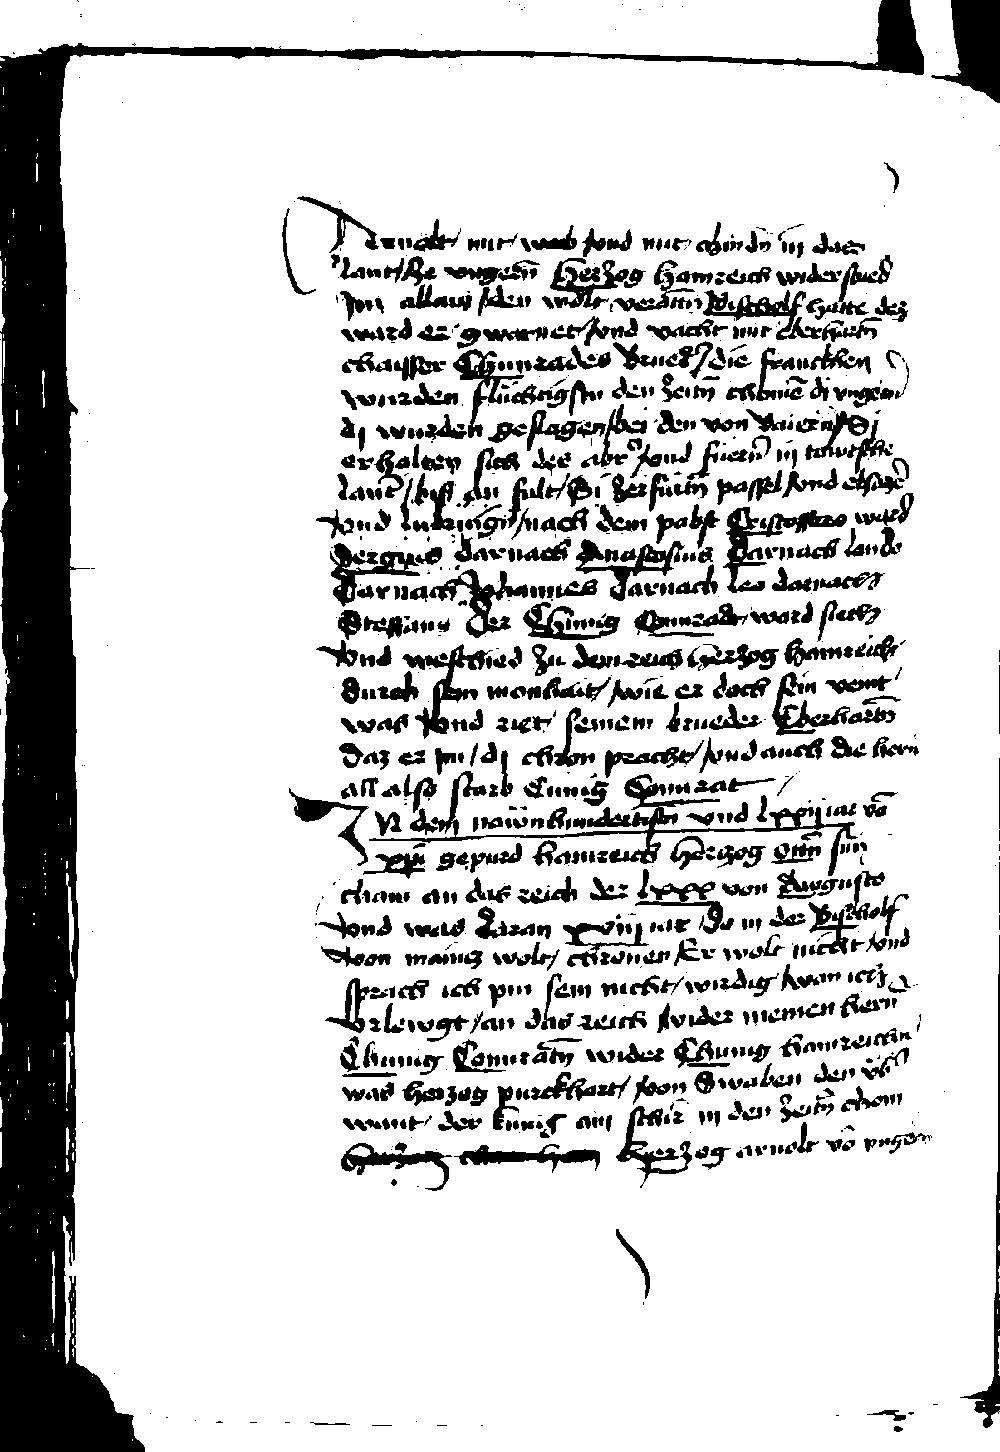 Arnolt mit weib vnd mit chindn in das
lant ze vngern Herzog hainreich widerstued
Im allain den wolt verattn Bischolf hatte dez
ward er gwarnet vnd vacht mit eberhartn
chaysser Chunrades Brued die franckhen
wurden fluchtig In den zeitn chomen di vngern
di wurden geslagen bei den von Baiern Si
erholten sich des abr vnd fuern in tewtsche
lant bis an fult Si zerfurtn passel vnd elsazz
vnd luteringn nach dem pabst Cristoffero ward
Sergius darnach Anastosius Darnach lando
Darnach Johannes Darnach leo darnach
Steffanus Der Chunig Conradt ward siech
vnd weschied zu dem reich herzog hainreich
durch sein monhait wie er doch sein veint
was vnd riet seinem brueder Eberhartn
daz er im di chron pracht vnd auch die hern
all also starb Cunig Conrat
In dem nawnhundertistn vnd lxxiij iar von
xpi gepurd hainreich herczog ottn sun
cham an das reich der lxxx von Augusto
vnd was daran xviij iar do in der Bischolf
von maincz wolt chronen Er wolt nicht vnd
sprach ich pin sein nicht wirdig wan ich
vrlewgt an das reich wider meinen hern
Chunig Conratn wider Chunig hainreichn
was herzog purckhart von Swaben den vb
want der kunig an schir in den zeitn chom
herzog arnolt von vngern